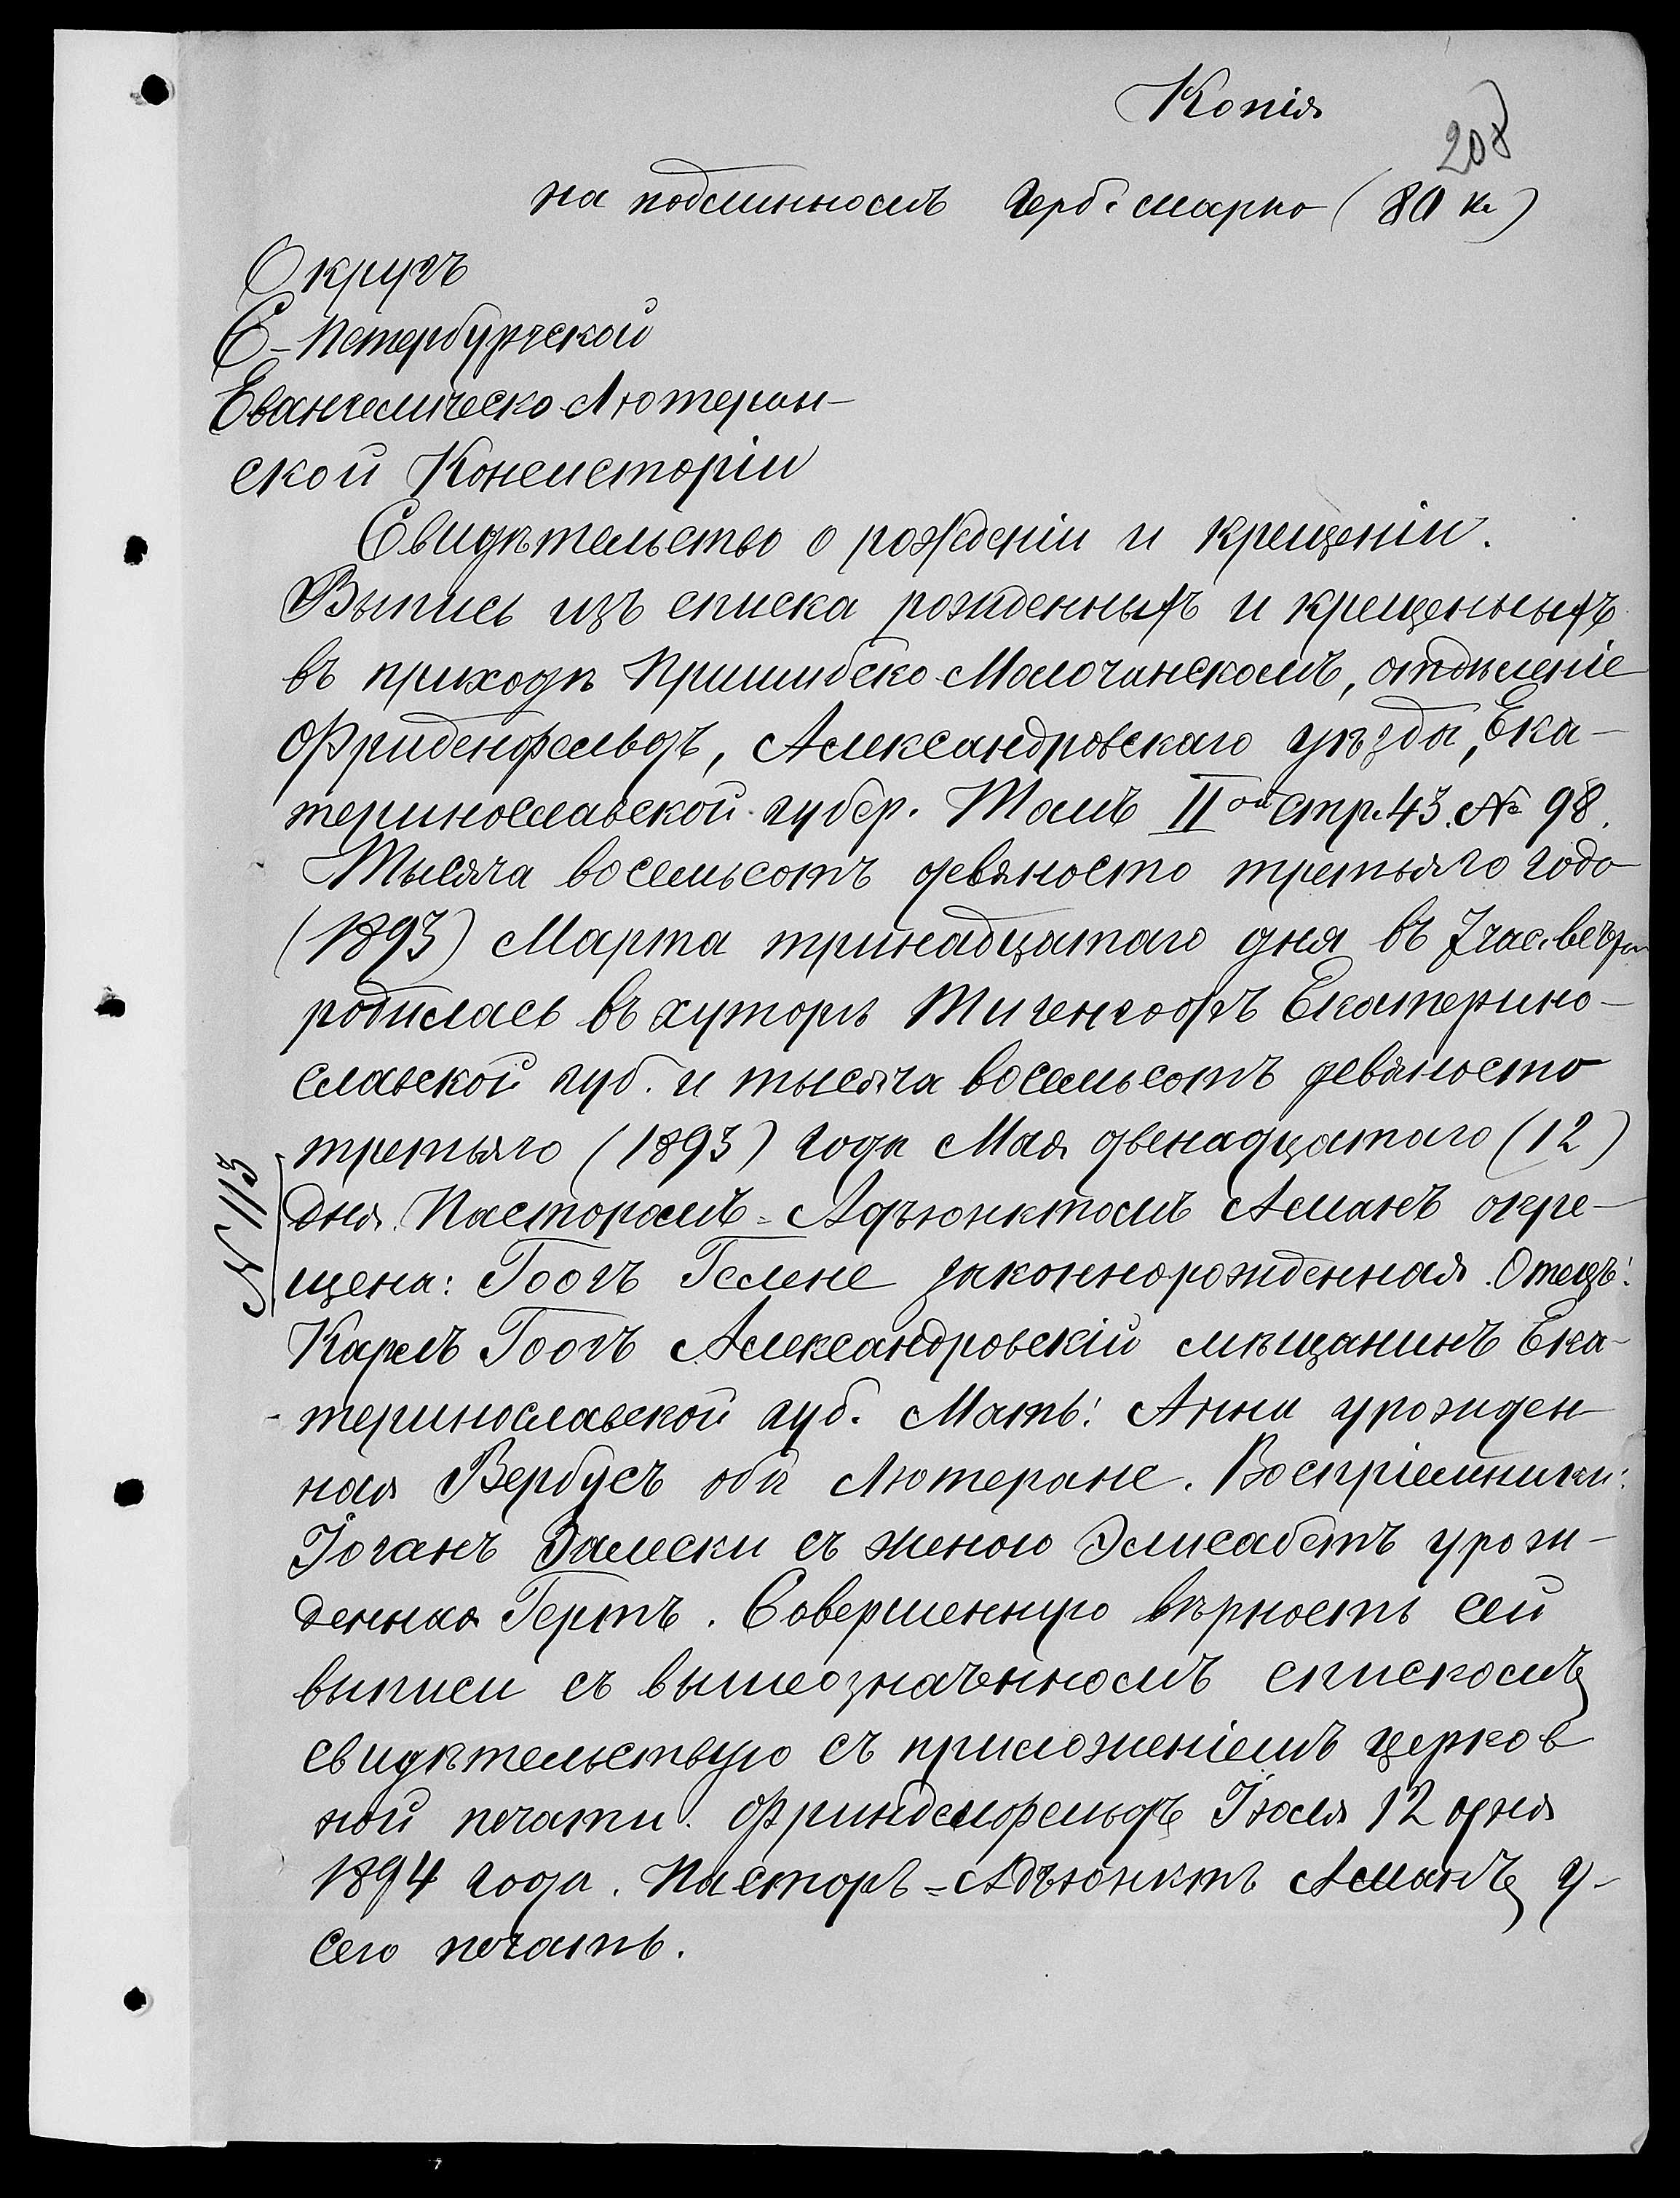 Копія
208
на подлинномъ герб. марка (80 к.)
Округъ
С-Петербургской
Евангелическо Лютеран-
ской Консисторіи
Свидѣтельство о рожденіи и крещеніи.
Выпись изъ списка рожденныхъ и крещенныхъ
въ приходѣ Пришибско-Молочанскомъ, отдѣленіе
Фриденфельдъ, Александровскаго уѣзда, Ека-
теринославской губер. Томъ II ой стр. 43. № 98.
Тысяча восемьсотъ девяносто третьяго года
(1893) Марта тринадцатаго дня въ 7 час. вечера
родилась въ хуторѣ Тигенгофъ Екатерино-
славской губ. и тысяча восемьсотъ девяносто
третьяго (1893) года Мая двенадцатаго (12)
№ 113
дня Пасторомъ-Адъюнктомъ Асманъ окре-
щена: Гоогъ Гелене законнорожденная. Отецъ:
Карлъ Гоогъ Александровскій мѣщанинъ Ека-
теринославской губ. Мать: Анна урожден
ная Вербусъ оба Лютеране. Воспріемники:
Іоганъ Залески съ женою Элисабетъ урож-
денная Гертъ. Совершенную вѣрность сей
выписи съ вышеозначенномъ спискомъ
свидѣтельствую съ приложеніемъ церков
ной печати. Фринденфельдъ Іюля 12 дня
1894 года. Пасторъ-Адъюнктъ Асманъ у-
сего печать.